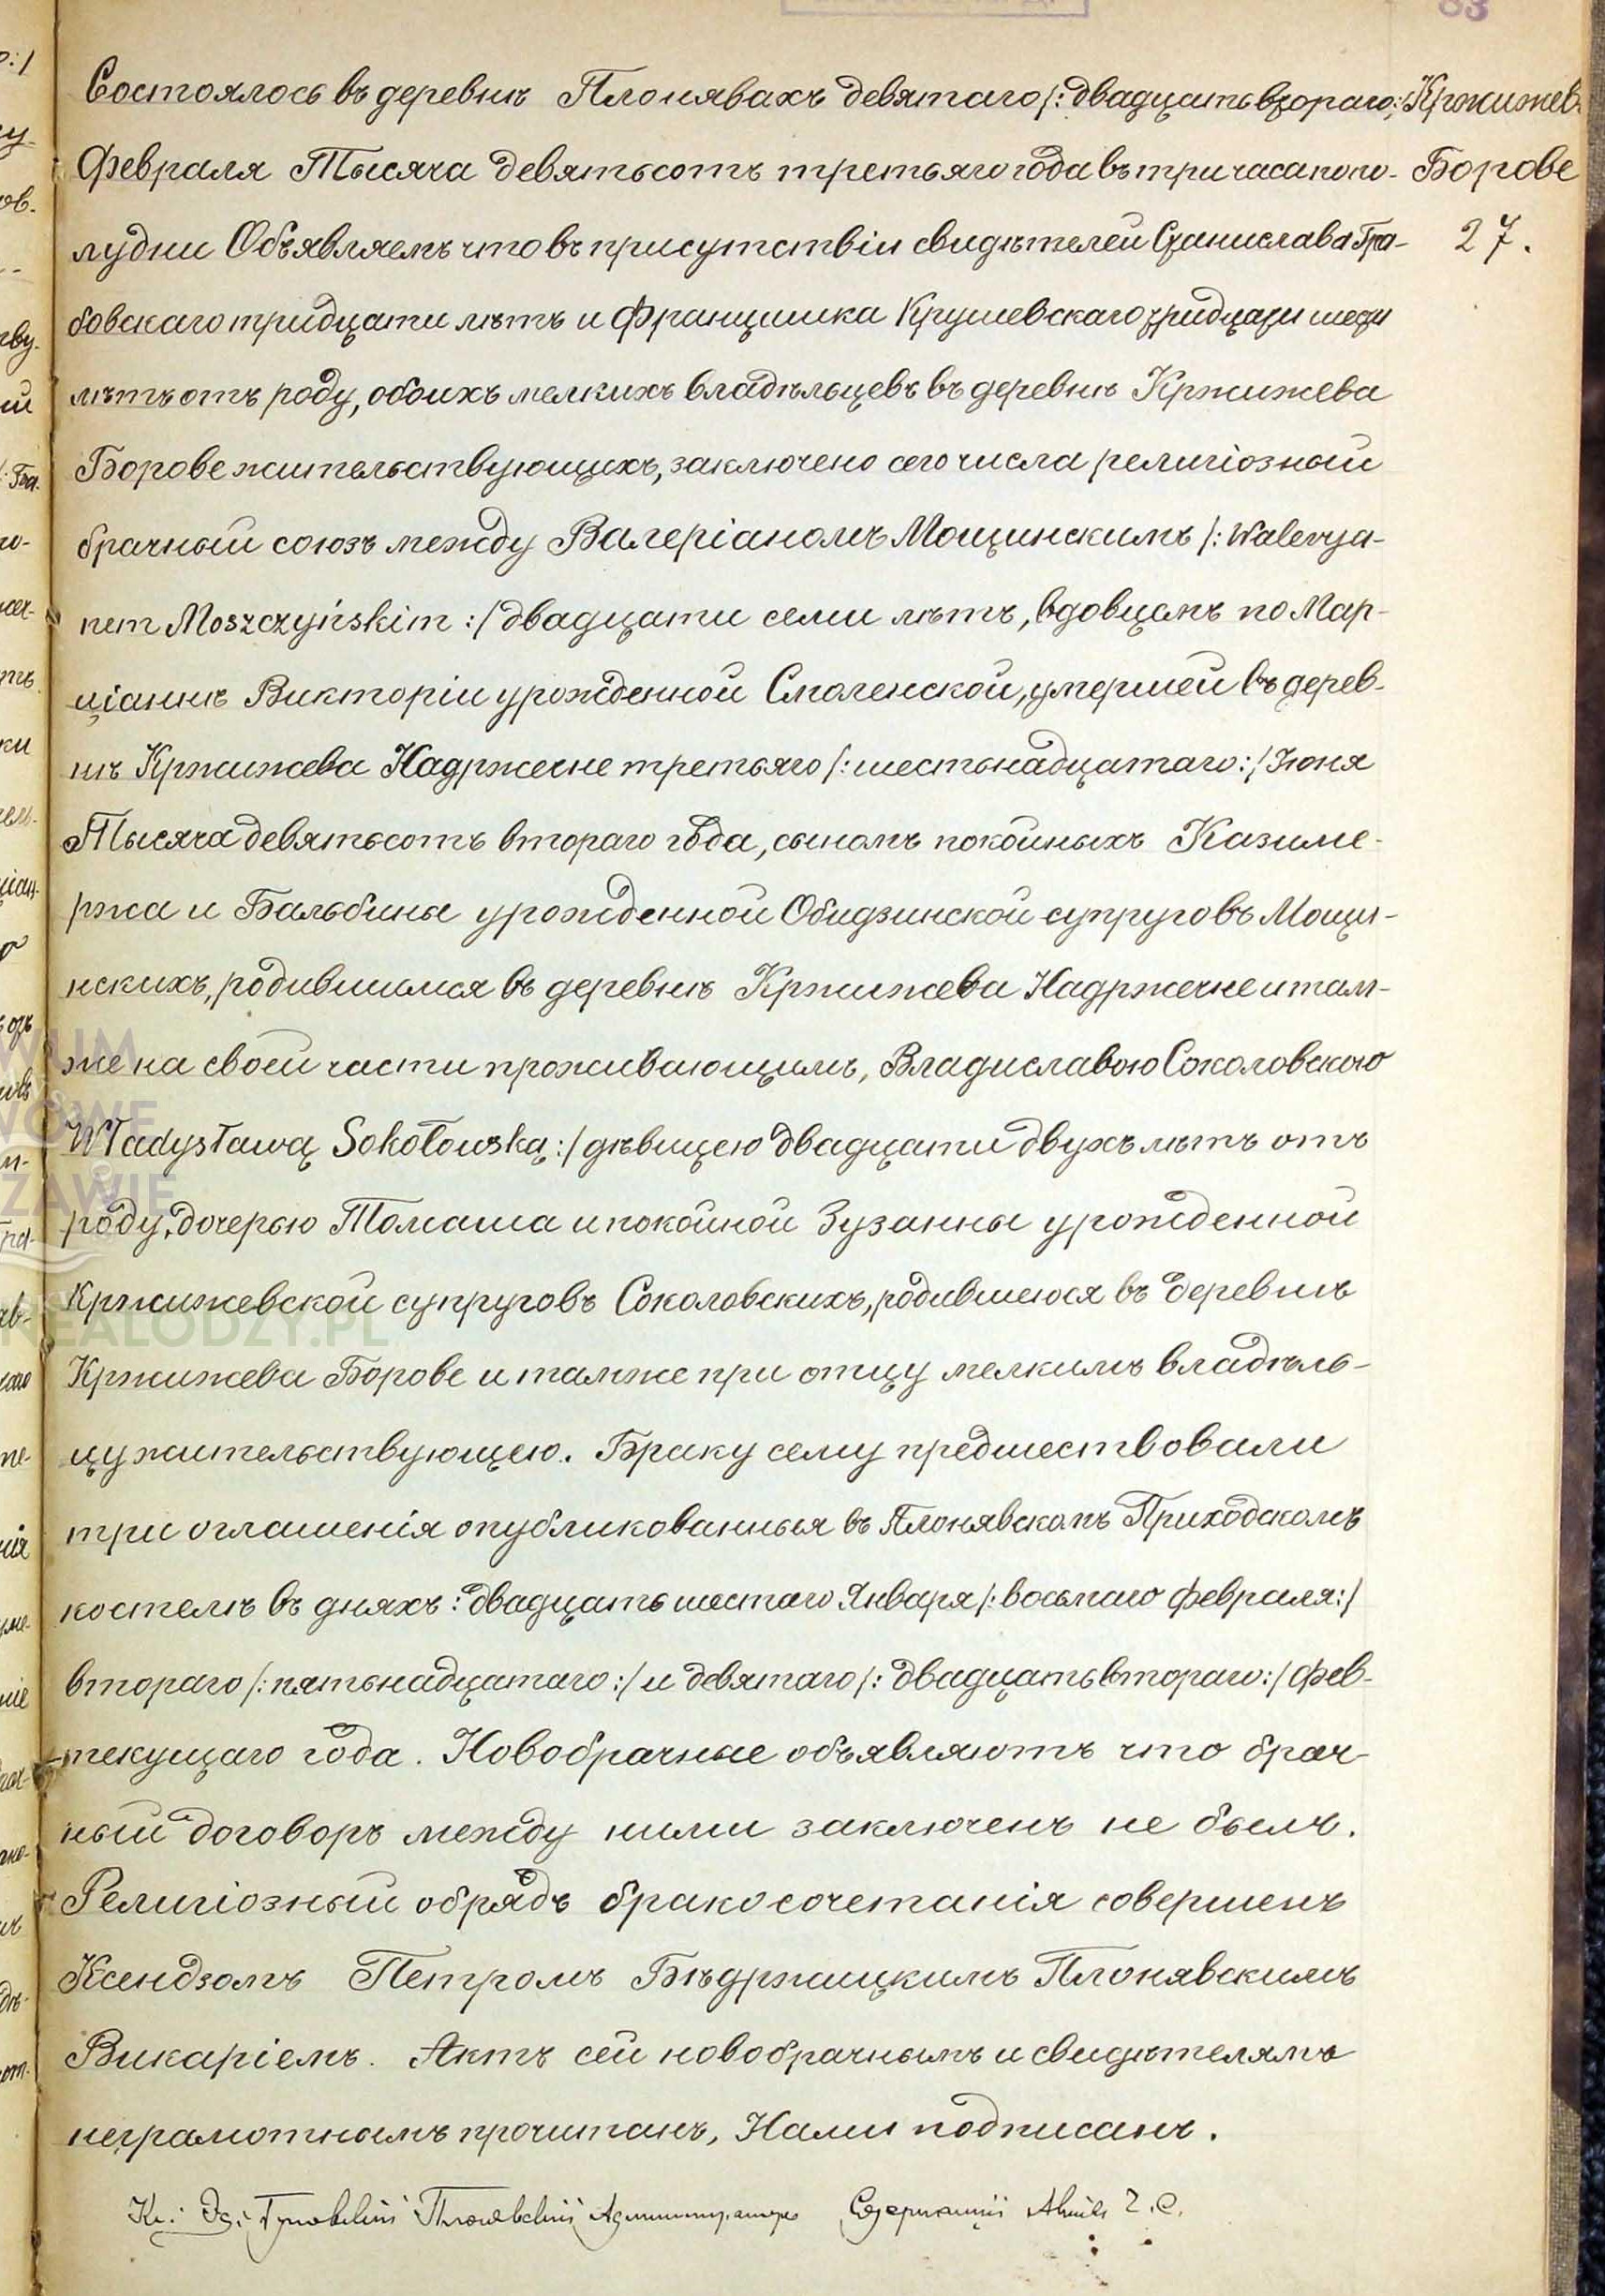 83
Состоялось въ деревнѣ Плонявахъ девятаго /: двадцать втораго :/ Кржижев.
Февраля Тысяча девятьсотъ третьяго года въ три часа попо- Борове
лудни Объявляемъ что въ присутствіи свидѣтелей Станислава Гра- 27.
бовскаго тридцати лѣтъ и Францишка Крушевскаго тридцати шести
лѣтъ отъ роду, обоихъ мелкихъ владѣльцевъ въ деревнѣ Кржижева
Борове жительствующихъ, заключено сего числа религіозный
брачный союзъ между Валеріаномъ Мощинскимъ /: Walerya-
nem Moszczyńskim :/ двадцати семи лѣтъ, вдовцомъ по Мар-
ціаннѣ Викторіи урожденной Смоленской, умершей въ дерев-
нѣ Кржижева Надржечне третьяго /: шестьнадцатаго :/ Іюня
Тысяча девятьсотъ втораго года, сыномъ покойныхъ Казиме-
ржа и Бальбины урожденной Обидзинской супруговъ Мощи-
нскихъ, родившимся въ деревнѣ Кржижева Надржечне и там-
же на своей части проживающимъ, Владиславою Соколовскою
Władysławą Sokołowską :/ дѣвицею двадцати двухъ лѣтъ отъ
роду, дочерью Томаша и покойной Зузанны урожденной
Кржижевской супруговъ Соколовскихъ, родившеюся въ деревнѣ
Кржижева Борове и тамже при отцу мелкимъ владѣль-
цу жительствующею. Браку сему предшествовали
три оглашенія опубликованныя въ Плонявскомъ Приходскомъ
костелѣ въ дняхъ: двадцать шестаго Января /: восьмаго Февраля :/
втораго /: пятьнадцатаго :/ и девятаго /: двадцать втораго :/ Фев-
текущаго года. Новобрачные объявляютъ что брач-
ный договоръ между ними заключенъ не былъ.
Религіозный обрядъ бракосочетанія совершенъ
Ксендзомъ Петромъ Бѣдржицкимъ Плонявскимъ
Викаріемъ. Актъ сей новобрачнымъ и свидѣтелямъ
неграмотнымъ прочитанъ, Нами подписанъ.
Плонявскій Администраторъ Содержащій Акты Г. С.